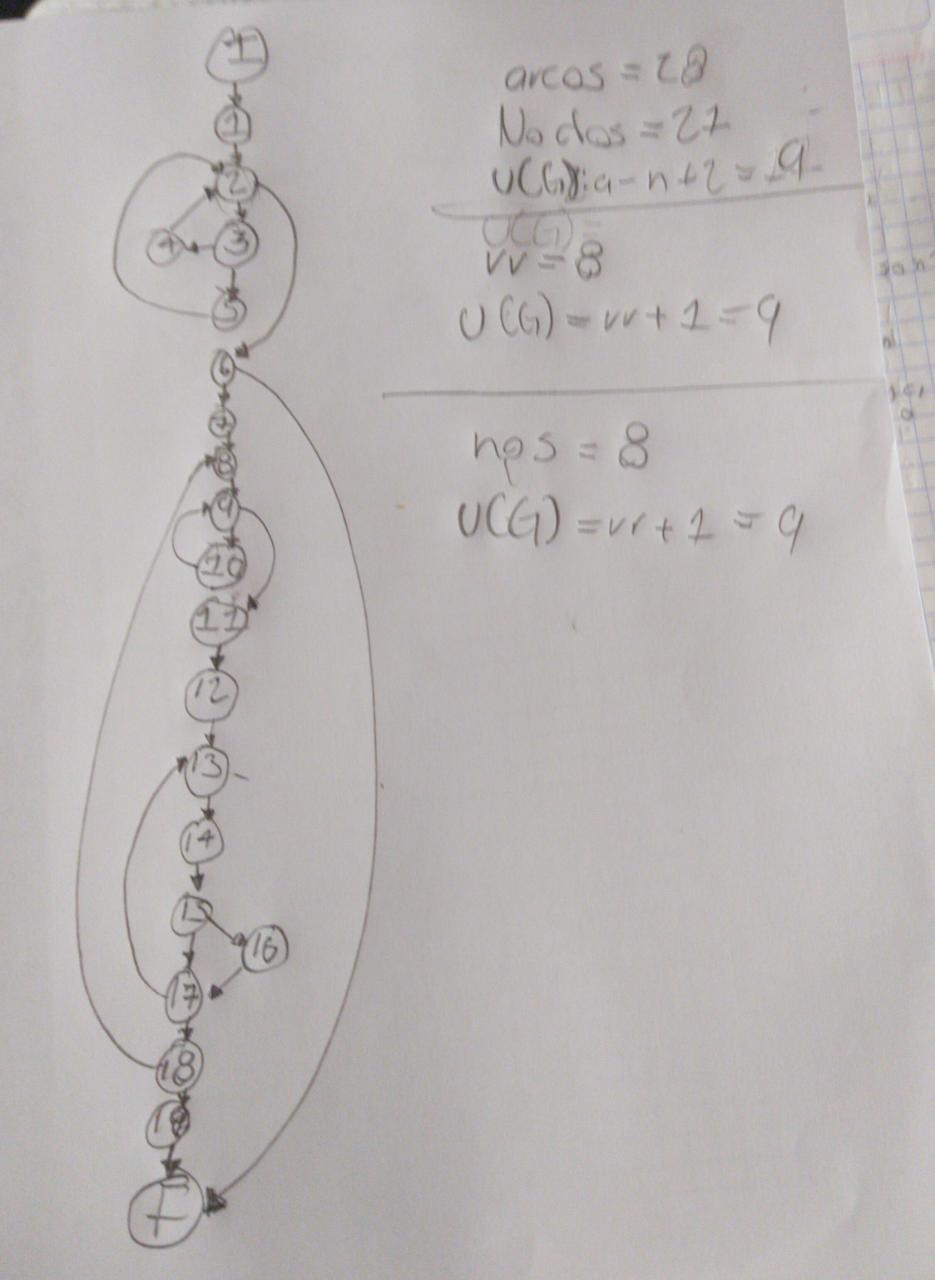 I
1
2
4 3
5
6
7
8
9
10
11
12
13
14
15
16
17
18
19
F
arcos = 28
Nodos = 21
V(G): a - n + 2 = 9
V(G) =
vr = 8
V(G) = vr + 1 = 9
nps = 8
V(G) = vr + 1 = 9